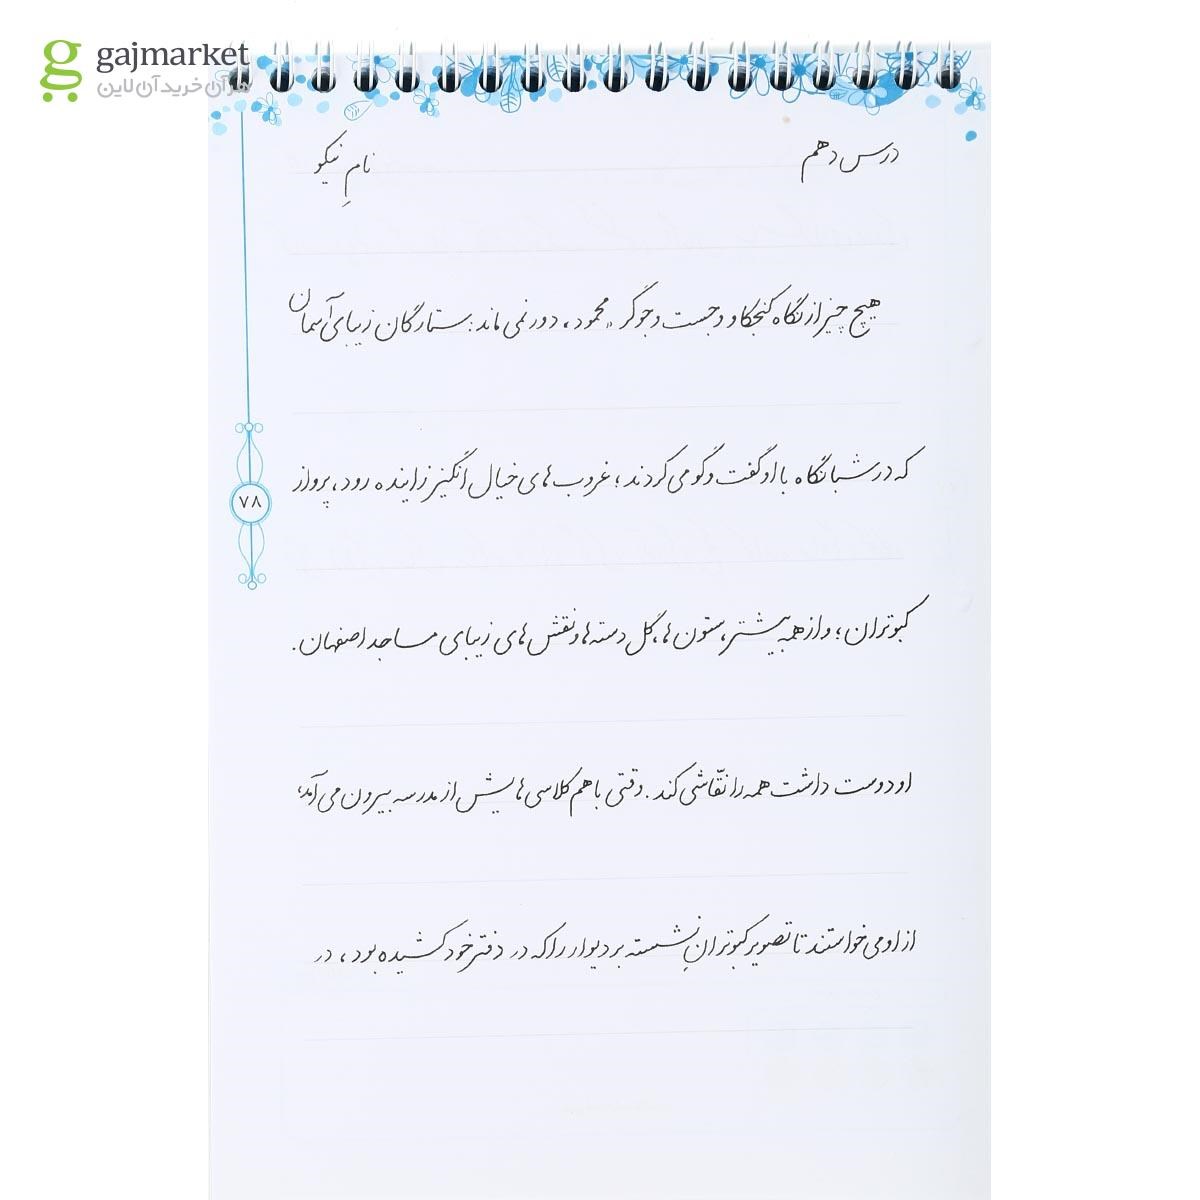 gajmarket
هر آن خرید آن لاین
درس دهم
نامِ نیکو
هیچ چیز از نگاه کنجکاو و جست و جوگر «محمود» دور نمی ماند: ستارگان زیبای آسمان
که در شبانگاه با او گفت و گو می کردند؛ غروب های خیال انگیز زاینده رود، پرواز
۷۸
کبوتران؛ و از همه بیشتر، ستون ها، گل دسته ها و نقش های زیبای مساجد اصفهان.
او دوست داشت همه را نقّاشی کند. وقتی با هم کلاسی هایش از مدرسه بیرون می آمد،
از او می خواستند تا تصویر کبوترانِ نشسته بر دیوار را که در دفتر خود کشیده بود، در